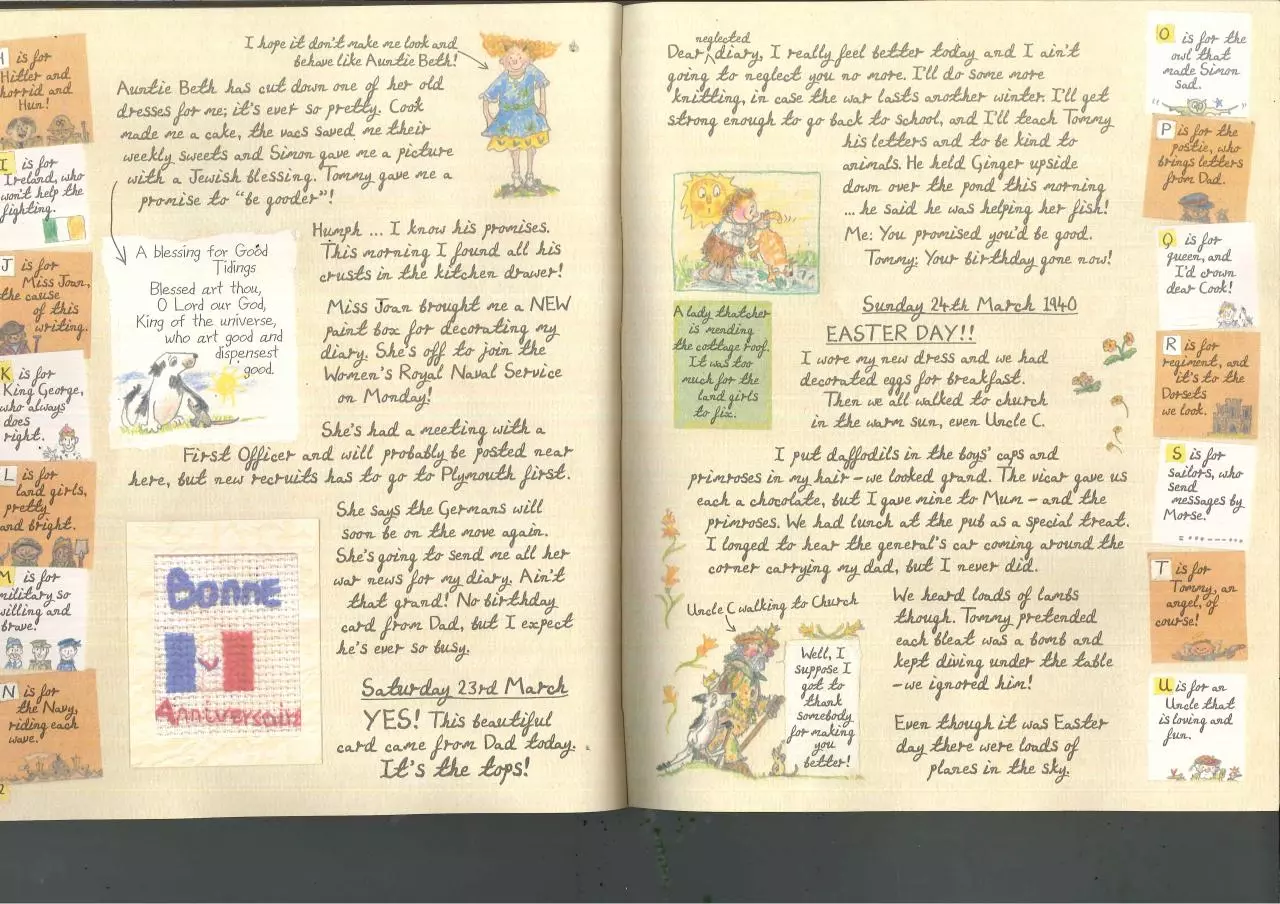 H is for
Hitler and
horrid and
Hun!
I is for
Ireland, who
won't help the
fighting.
J is for
Miss Joan,
the cause
of this
writing.
K is for
King George,
who always
does
right.
L is for
land girls,
pretty
and bright.
M is for
military so
willing and
brave.
N is for
the Navy,
riding each
wave.
2
I hope it don't make me look and
behave like Auntie Beth!
Auntie Beth has cut down one of her old
dresses for me; it's ever so pretty. Cook
made me a cake, the vacs saved me their
weekly sweets and Simon gave me a picture
with a Jewish blessing. Tommy gave me a
promise to "be gooder"!
A blessing for Good
Tidings
Blessed art thou,
O Lord our God,
King of the universe,
who art good and
dispensest
good.
Humph ... I know his promises.
This morning I found all his
crusts in the kitchen drawer!
Miss Joan brought me a NEW
paint box for decorating my
diary. She's off to join the
Women's Royal Naval Service
on Monday!
She's had a meeting with a
First Officer and will probably be posted near
here, but new recruits has to go to Plymouth first.
She says the Germans will
soon be on the move again.
She's going to send me all her
war news for my diary. Ain't
that grand! No birthday
card from Dad, but I expect
he's ever so busy.
BONNE
Anniversaire
Saturday 23rd March
YES! This beautiful
card came from Dad today.
It's the tops!
neglected
Dear diary, I really feel better today and I ain't
going to neglect you no more. I'll do some more
knitting, in case the war lasts another winter. I'll get
strong enough to go back to school, and I'll teach Tommy
his letters and to be kind to
animals. He held Ginger upside
down over the pond this morning
... he said he was helping her fish!
Me: You promised you'd be good.
Tommy: Your birthday gone now!
A lady thatcher
is mending
the cottage roof.
It was too
much for the
land girls
to fix.
Sunday 24th March 1940
EASTER DAY!!
I wore my new dress and we had
decorated eggs for breakfast.
Then we all walked to church
in the warm sun, even Uncle C.
I put daffodils in the boys' caps and
primroses in my hair – we looked grand. The vicar gave us
each a chocolate, but I gave mine to Mum – and the
primroses. We had lunch at the pub as a special treat.
I longed to hear the general's car coming around the
corner carrying my dad, but I never did.
Uncle C walking to Church
Well, I
suppose I
got to
thank
somebody
for making
you
better!
We heard loads of lambs
though. Tommy pretended
each bleat was a bomb and
kept diving under the table
– we ignored him!
Even though it was Easter
day there were loads of
planes in the sky.
O is for the
owl that
made Simon
sad.
P is for the
postie, who
brings letters
from Dad.
Q is for
queen, and
I'd crown
dear Cook!
R is for
regiment, and
it's to the
Dorsets
we look.
S is for
sailors, who
send
messages by
Morse.
T is for
Tommy, an
angel, of
course!
U is for an
Uncle that
is loving and
fun.